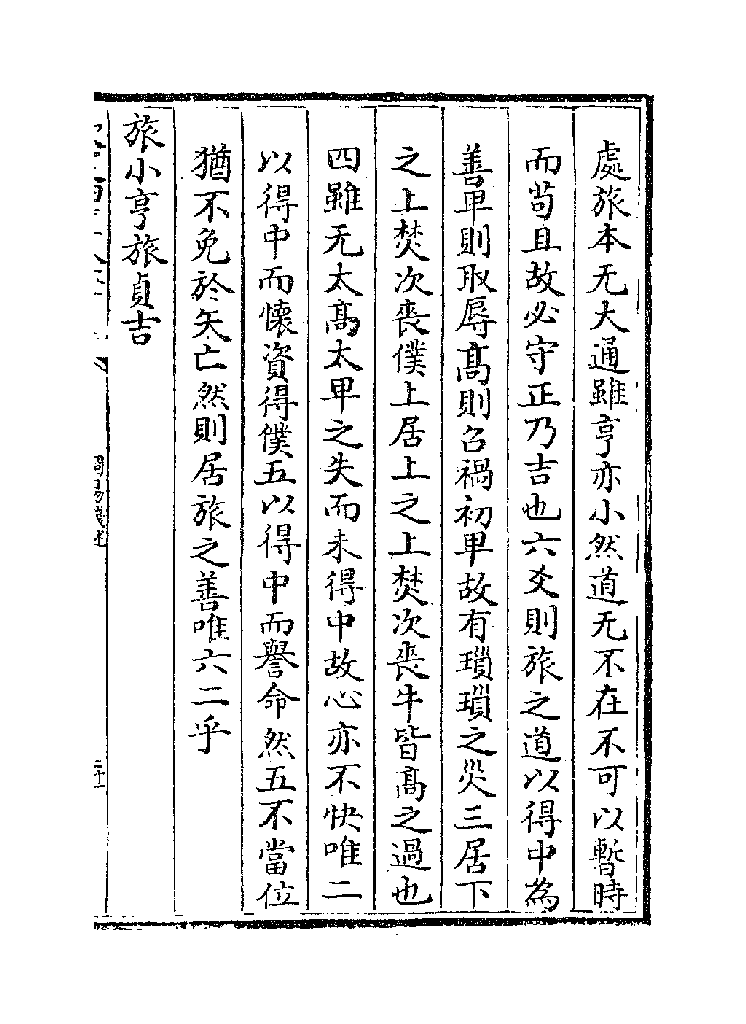 處旅本无大通雖亨亦小然道无不在不可以暫時
而苟且故必守正乃吉也六爻則旅之道以得中為
善卑則取辱髙則召禍初卑故有瑣瑣之災三居下
之上焚次喪僕上居上之上焚次喪牛皆髙之過也
四雖无太髙太卑之失而未得中故心亦不快唯二
以得中而懷資得僕五以得中而譽命然五不當位
猶不免於矢亡然則居旅之善唯六二乎
旅小亨旅貞吉
周易淺述